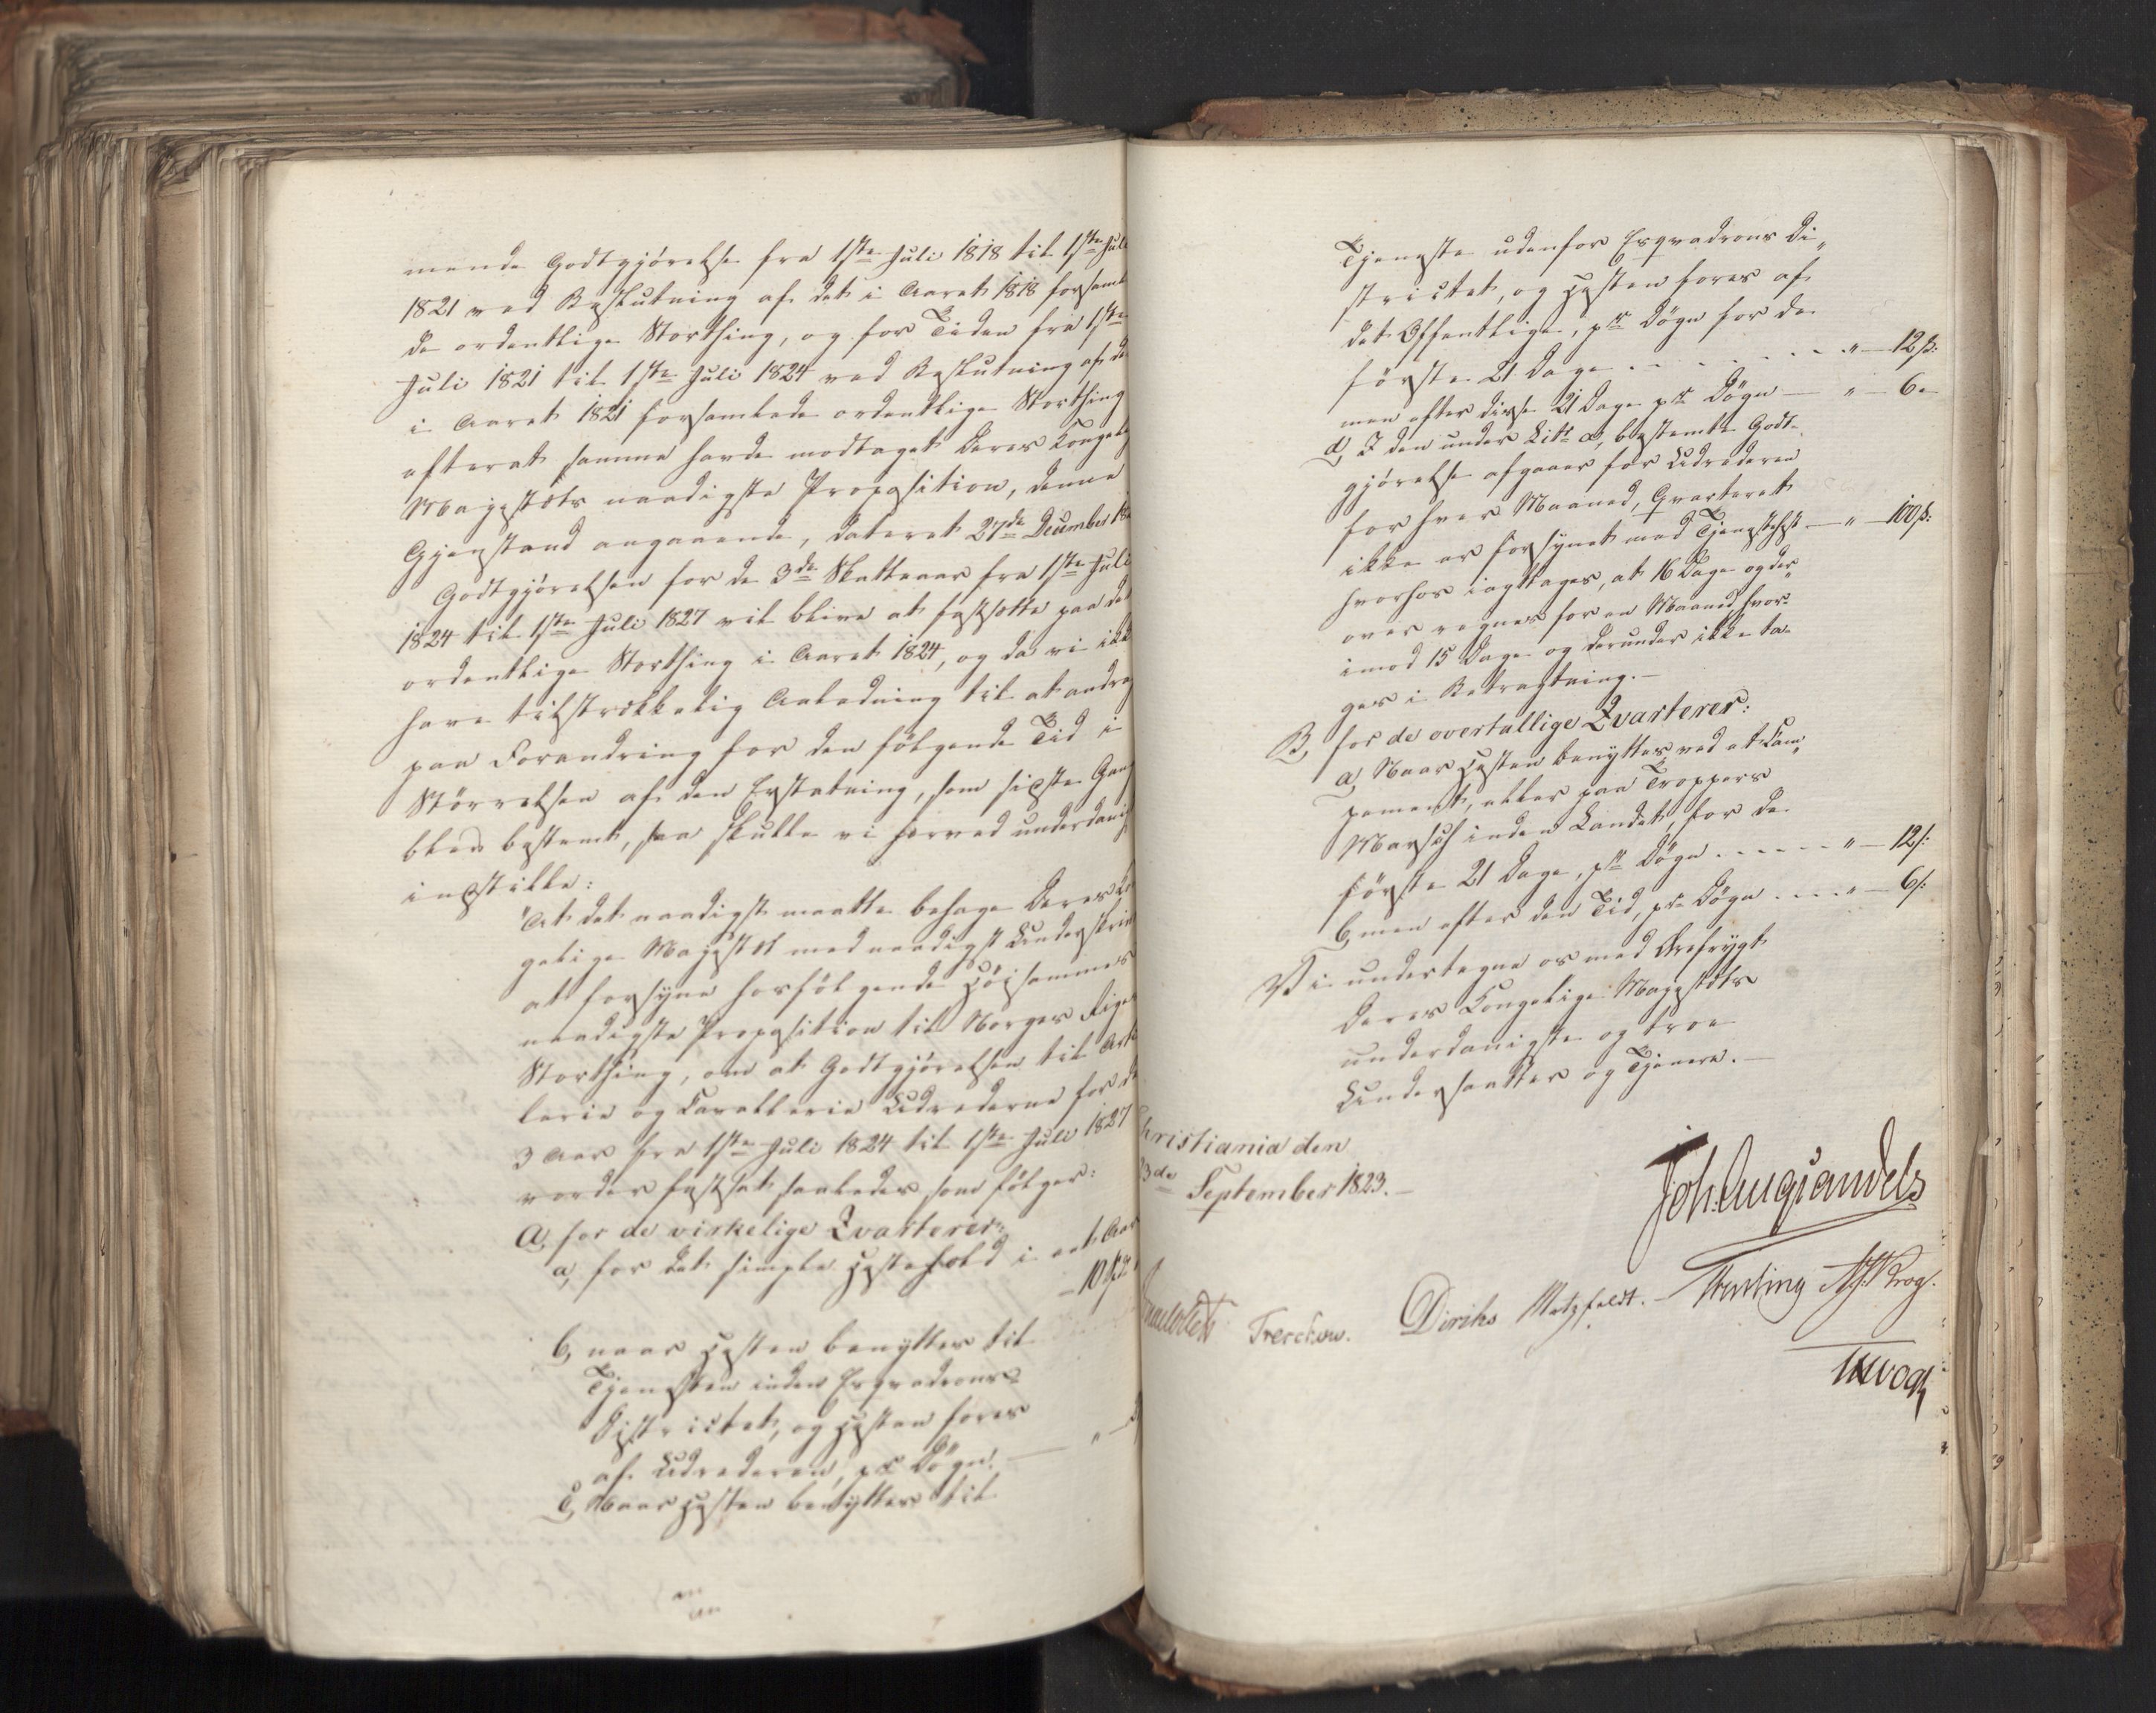 mende Godtgjörelse fra 1ste Juli 1818 til 1ste Juli
1821 ved Beslutning af det i Aaret 1818 forsaml
de ordentlige Storthing, og for Tiden fra 1ste
Juli 1821 til 1ste Juli 1824 ved Beslutning af de
i Aaret 1821 forsamlede ordentlige Storthing
efterat samme havde modtaget Deres Kongeli
Majestæts naadigste Proposition, denne
Gjenstand angaaende, dateret 27de December 18
Godtgjörelsen for de 3de Skatteaar fra 1ste Juli
1824 til 1ste Juli 1827 vil blive at fastsætte paa det
ordentlige Storthing i Aaret 1824, og da vi ikke
have tilstrækkelig Anledning til at andrag
paa Forandring for den fölgende Tid i
Störrelsen af den Erstatning, som sidste Gang
blev bestemt, saa skulle vi herved underdanig
indstille:
"At det naadigst maatte behage Deres Ko
gelige Majestæt med naadigst Underskrivt
at forsyne hosfölgende Höistsammes
naadigste Proposition til Norges Riges
Storthing, om at Godtgjörelsen til Artil
lerie og Cavallerie Udrederne for de
3 Aar fra 1ste Juli 1824 til 1ste Juli 1827
vorder fastsat saaledes som fölger:
A, for de virkelige Qvarterer:
a, for det simple Hestehold i eet Aar
- 10 Spd
b, naar Hesten benyttes til
Tjenesten inden Esqvadrons
Districtet, og Hesten fores
af Udrederen, pr Dögn. — " —
c, Naar Hesten benyttes til
Tjeneste udenfor Esqvadrons Di„
strictet, og Hesten fores af
det Offentlige, pr Dögn for de
förste 21 Dage . . . . . . " — 12 ß:
men efter disse 21 Dage pr Dögn — " — 6 -
d, I den under Litr a, bestemte Godt-
gjörelse afgaaer for Udrederen
for hver Maaned, Qvarteret
ikke er forsynet med Tjenestehest — " — 100 ß:
hvorhos iagttages, at 16 Dage og der„
over regnes for en Maaned, hvor-
imod 15 Dage og derunder ikke ta-
ges i Betragtning. —
B, for de overtallige Qvarterer:
a, Naar Hesten benyttes ved et Cam„
pement, eller paa Troppers
Marsch inden Landet, for de
förste 21 Dage, pr Dögn . . . . . . " — 12 ß:
b, men efter den Tid, pr Dögn . . . . " — 6 ß:
Vi undertegne os med Ærefrygt
Deres Kongelige Majestæts
underdanigste og troe
Undersaatter og Tjenere. —
hristiania den
3de September 1823. —
Joh: Aug: Sandels
Treschow. Diriks Motzfeldt. — Fasting N: J: Krog.
JHVogt